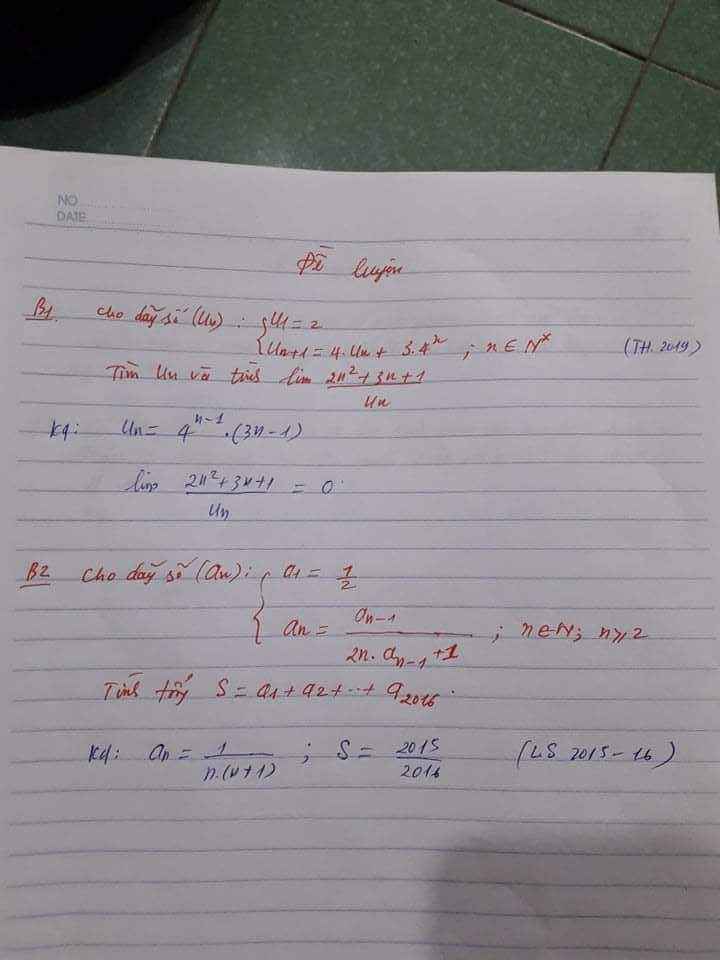 NO
DATE
Đề luyện
B1. Cho dãy số (Un): { U1 = 2
Un+1 = 4.Un + 3.4^n ; n ∈ N* (TH. 2019)
Tìm Un và tính lim (2n²+3n+1)/Un
kq: Un = 4^(n-1).(3n-1)
lim (2n²+3n+1)/Un = 0.
B2 Cho dãy số (an): { a1 = 1/2
an = an-1/(2n.an-1 +1) ; n∈N; n≥2
Tính tổng S = a1+a2+...+a2016.
kq: an = 1/(n.(n+1)) ; S = 2015/2016 (LS 2015-16)